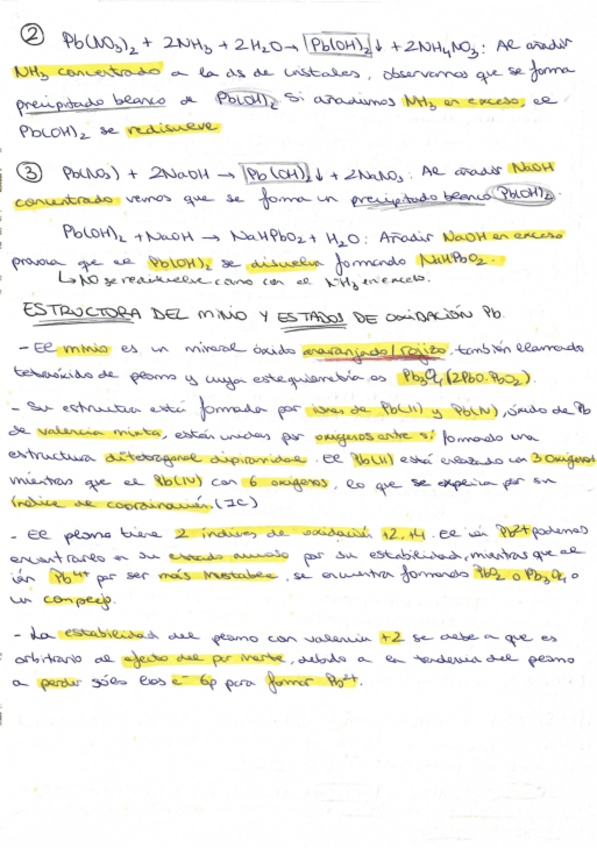 ② Pb(NO3)2 + 2NH3 + 2H2O → Pb(OH)2↓ + 2NH4NO3: Al añadir
NH3 concentrado a la ds de cristales, observamos que se forma
precipitado blanco de Pb(OH)2 Si añadimos NH3 en exceso, el
Pb(OH)2 se redisuelve
③ Pb(NO3) + 2NaOH → Pb(OH)2↓ + 2NaNO3: Al añadir NaOH
concentrado vemos que se forma un precipitado blanco Pb(OH)2.
Pb(OH)2 + NaOH → NaHPbO2 + H2O: Añadir NaOH en exceso
provoca que el Pb(OH)2 se disuelva formando NaHPbO2.
↳ NO se redisuelve como con el NH3 en exceso.
ESTRUCTURA DEL MINIO Y ESTADOS DE OXIDACIÓN Pb.
- El minio es un mineral óxido anaranjado/rojizo, también llamado
tetraóxido de plomo y cuya estequiometría es Pb3O4 (2PbO·PbO2).
- Su estructura está formada por iones de Pb(II) y Pb(IV), óxido de Pb
de valencia mixta, están unidas por oxígenos entre sí formando una
estructura ditetragonal dipiramidal. El Pb(II) está enlazado con 3 oxígenos
mientras que el Pb(IV) con 6 oxígenos, lo que se explica por su
índice de coordinación. (IC)
- El plomo tiene 2 índices de oxidación +2, +4. El ión Pb2+ podemos
encontrarlo en su estado acuoso por su estabilidad, mientras que el
ión Pb4+ por ser más inestable, se encuentra formando PbO2 o Pb3O4 o
un complejo.
- La estabilidad del plomo con valencia +2 se debe a que es
arbitrario al efecto del par inerte, debido a la tendencia del plomo
a perder sólo los e- 6p para formar Pb2+.